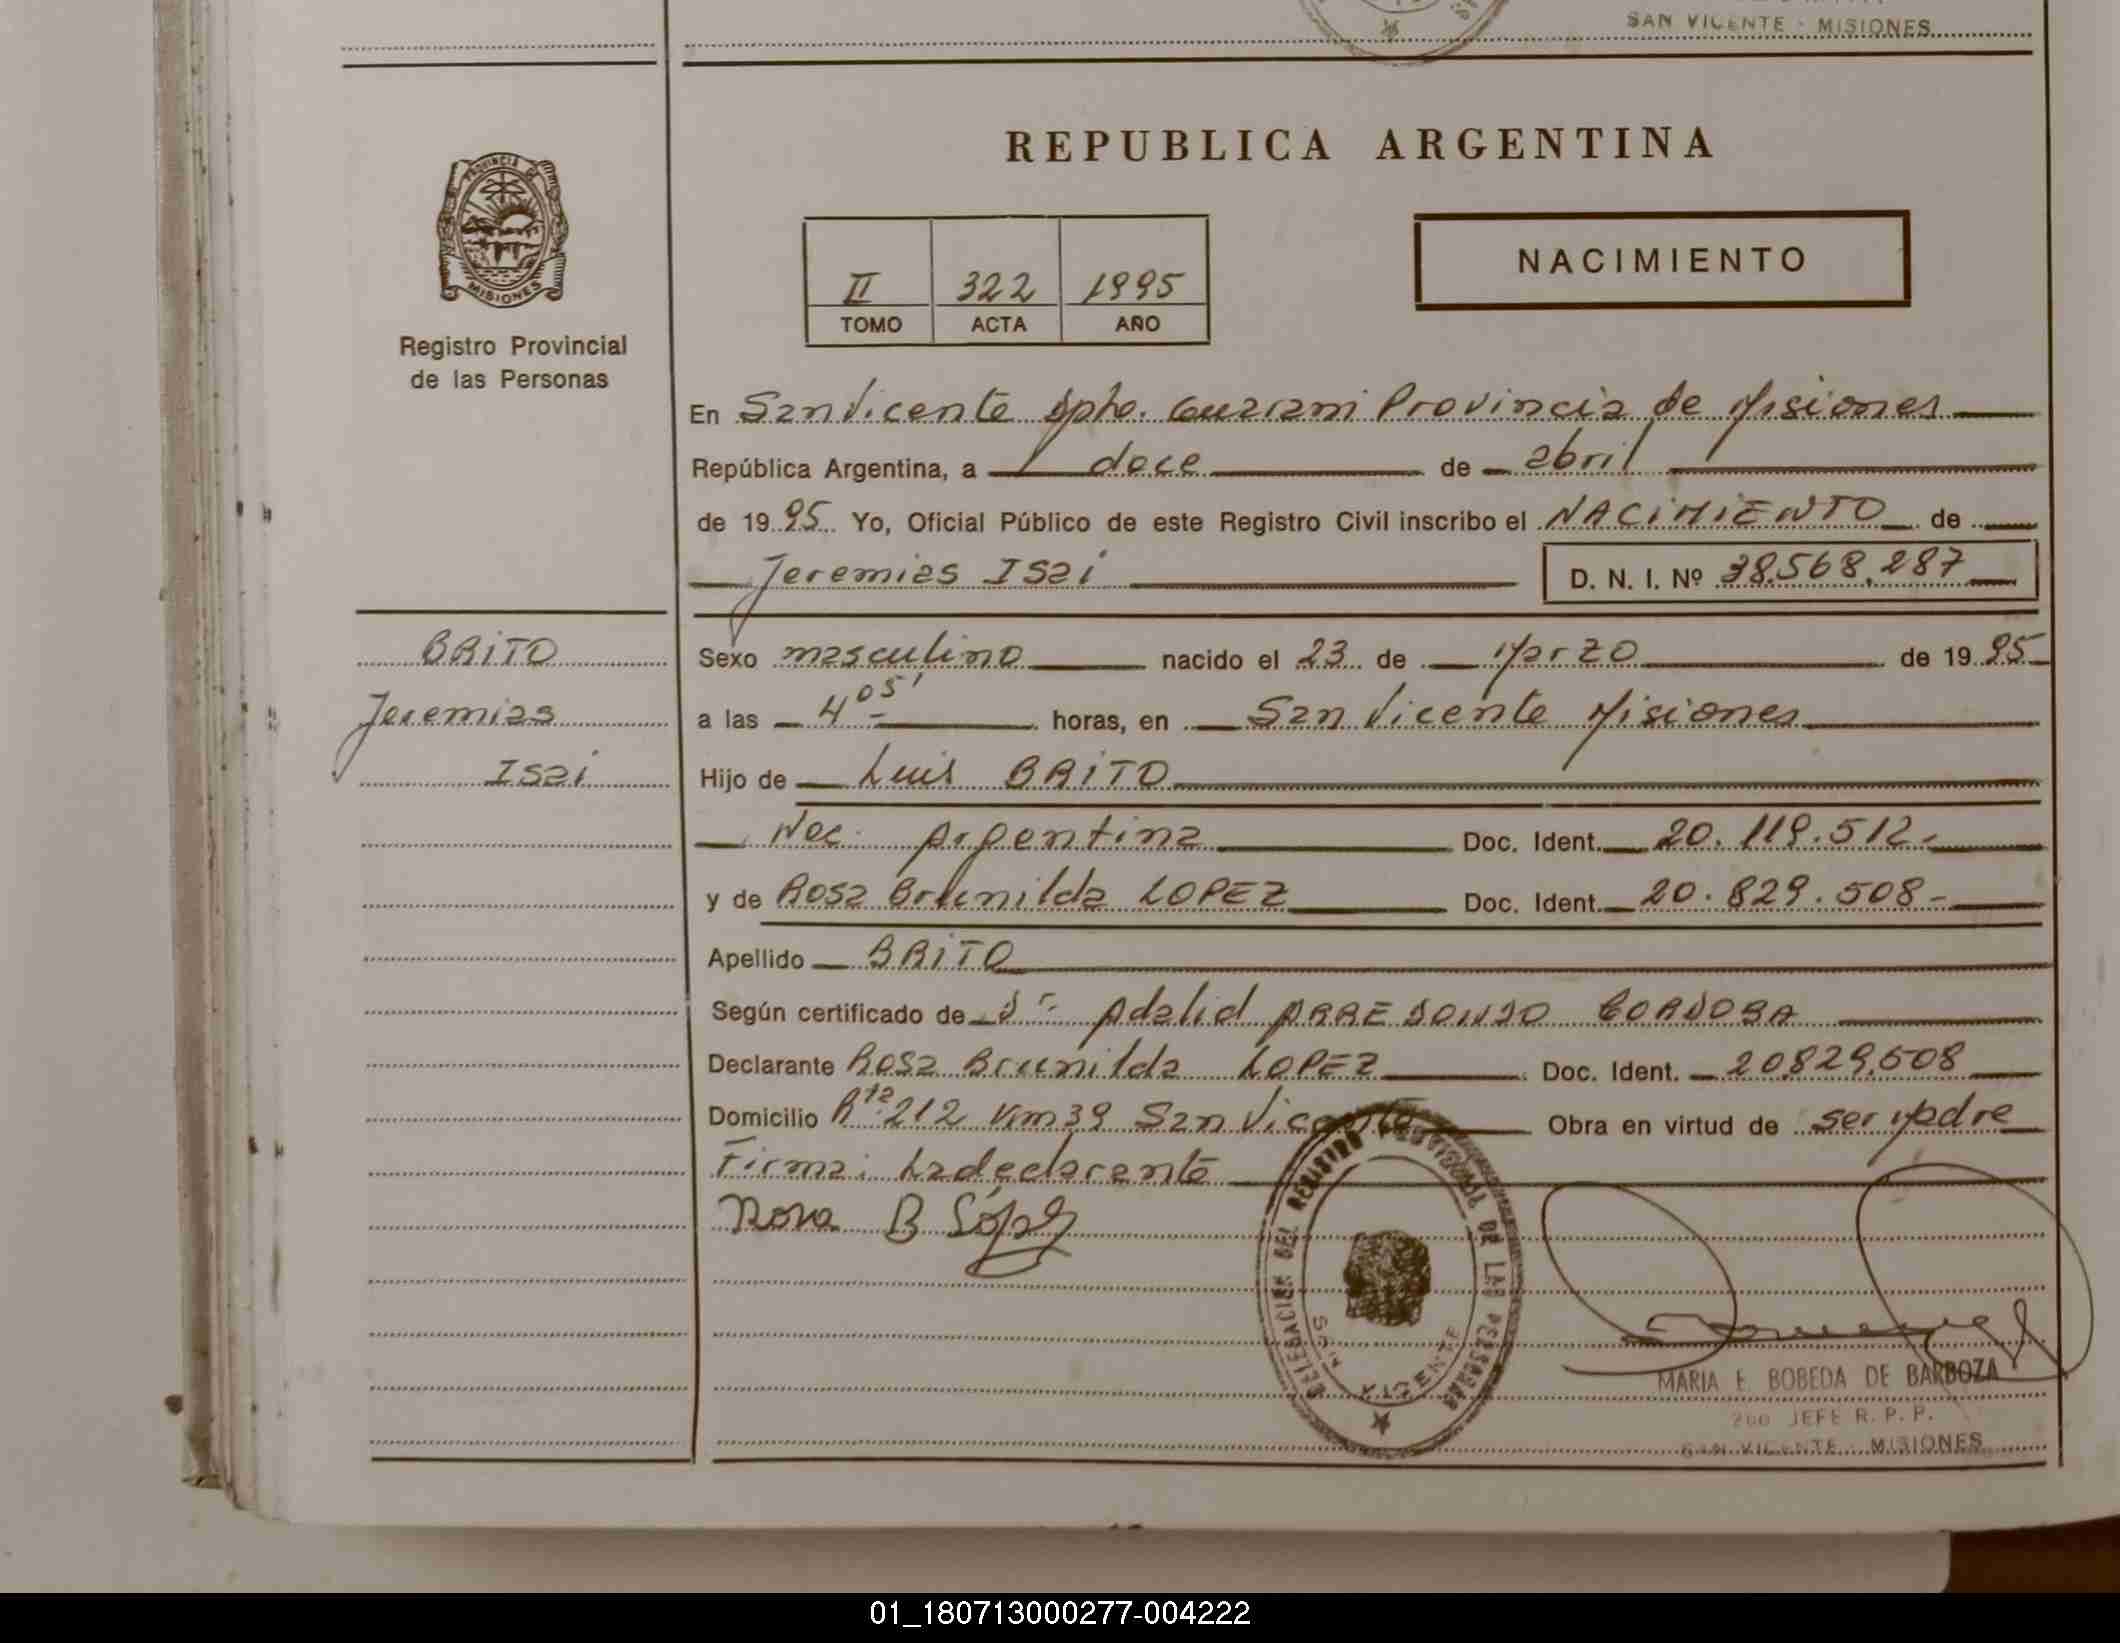 SAN VICENTE - MISIONES
PROVINCIA
MISIONES
Registro Provincial
de las Personas
REPUBLICA ARGENTINA
II 322 1995
TOMO ACTA AÑO
NACIMIENTO
En San Vicente Dpto. Guarani Provincia de Misiones
República Argentina, a doce de abril
de 1995 Yo, Oficial Público de este Registro Civil inscribo el NACIMIENTO de
Jeremias Isai D. N. I. Nº 38.568.287
BRITO
Jeremias
Isai
Sexo masculino nacido el 23 de Marzo de 1995
a las 4 05' horas, en San Vicente Misiones
Hijo de Luis BRITO
Nac. Argentina Doc. Ident. 20.119.512-
y de Rosa Brunilda LOPEZ Doc. Ident. 20.829.508-
Apellido BRITO
Según certificado de Dr. Adalid ARREDONDO CORDOBA
Declarante Rosa Brunilda LOPEZ Doc. Ident. 20.829.508
Domicilio Rta. 212 Km 39 San Vicente Obra en virtud de ser Madre
Firma: La declarante
Rosa B López
DELEGACION DEL REGISTRO PROVINCIAL DE LAS PERSONAS
SAN VICENTE
MARIA E. BOBEDA DE BARBOZA
2do JEFE R. P. P.
SAN VICENTE - MISIONES
01_180713000277-004222